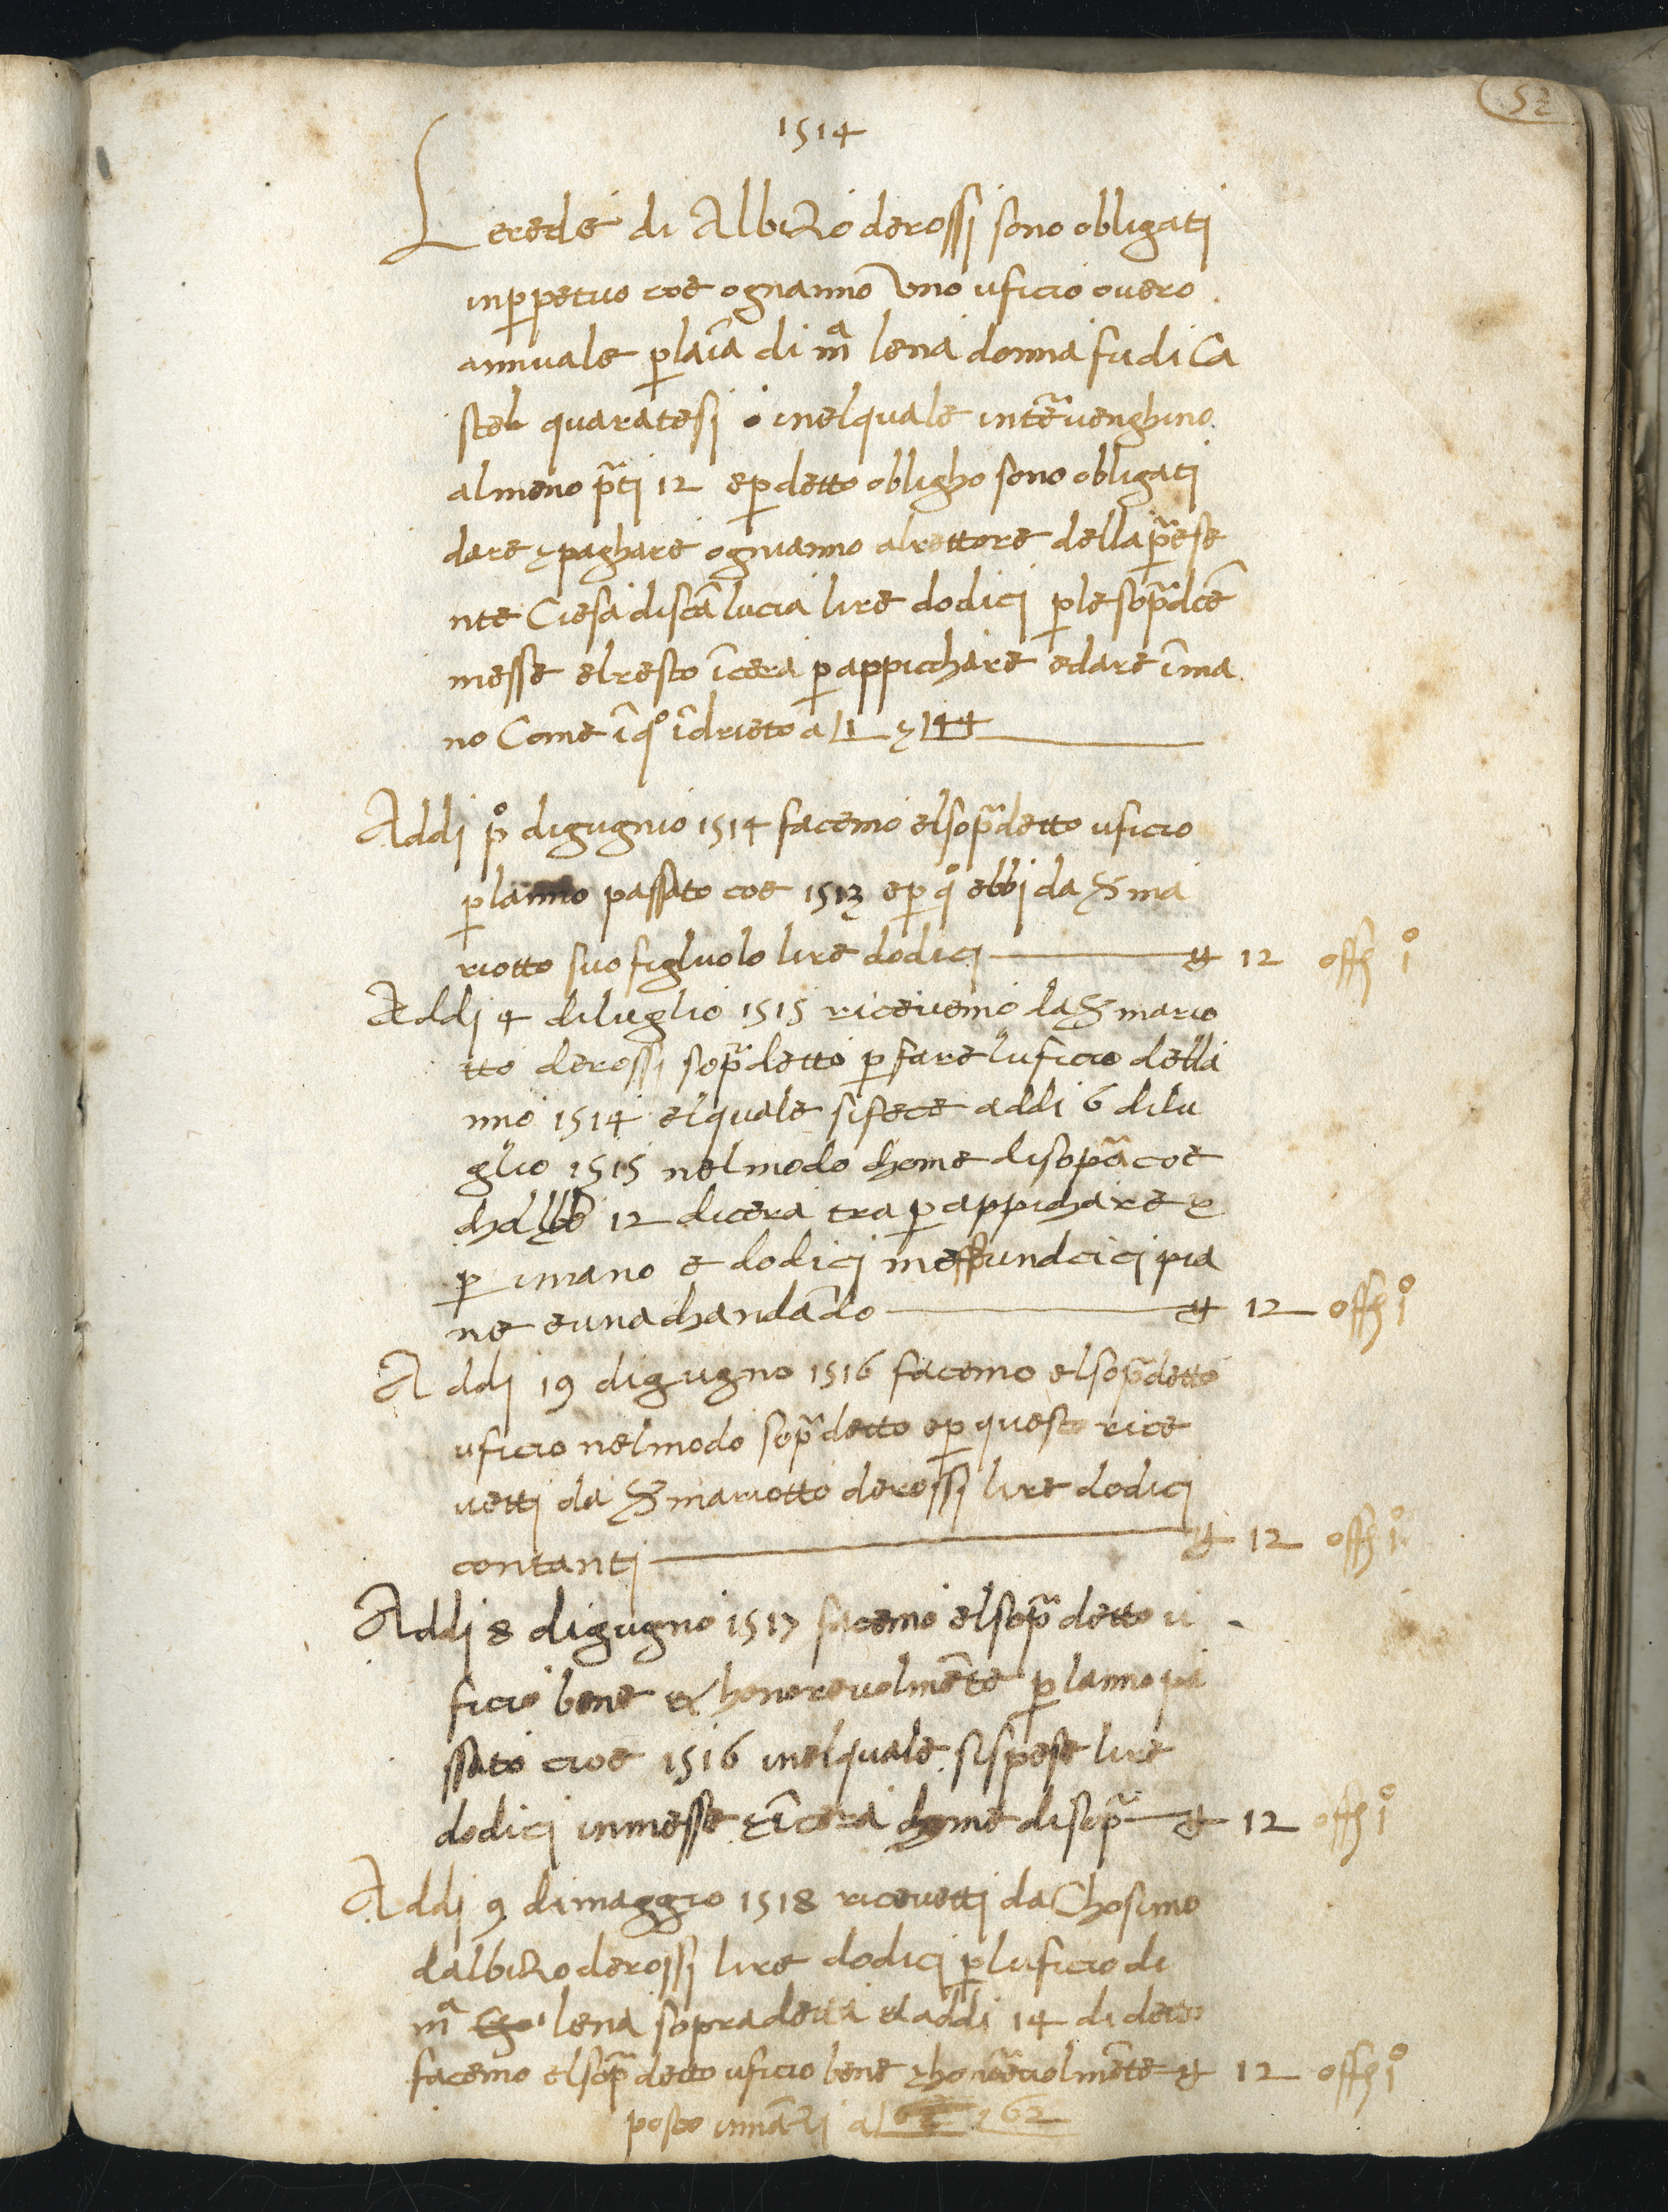 52
1514
Lerede di Albizo derossi sono obligati
inp̱petuo coe ognanno uno uficio overo
annuale p̱laīa di mᵃ lena donna fu di Ca
stel quaratesi inelquale intẽvenghino
almeno p̃ti 12 ep̱ detto obligho sono obligati
dare & paghare ognianno alrettore della p̃ese
nte Ciesa discã lucia lire dodici p̱le sop̃adcē
messe elresto īcera p̱ appicchare e dare īma
no Come ī qº īdrieto a 11 & 144
Addi pº digugnio 1514 facemo elsop̃adetto uficio
p̱lanno passato coe 1513 ep̱ qº ebbi da S ma
riotto suo figluolo lire dodici — ₶ 12 offi 1º
Addi 4 diluglio 1515 ricevemo da S mario
tto derossi sop̃adetto p̱ fare luficio della
nno 1514 elquale sifece addi 6 dilu
glio 1515 nelmodo chome disop̃a coe
12 dicera tra p̱ appichare &
p̱ imano e dodici messe undcici pia
ne e una chandādo — ₶ 12 offi 1º
Addi 19 digugno 1516 facemo elsop̃adetto
uficio nelmodo sop̃adetto ep̱ questo rice
vetti da S mariotto derossi lire dodici
contanti — ₶ 12 offi 1º
Addi 8 digugno 1517 facemo elsop̃adetto u
ficio bene & honorevolmēte p̱ lanno pa
ssato cioe 1516 inelquale sispese lire
dodici inmesse & īcera chome disop̃a — ₶ 12 offi 1º
Addi 9 dimaggio 1518 ricevetti da Chosimo
dalbizo derossi lire dodici p̱ luficio di
mᵃ lena sopradetta et addi 14 di detto
facemo elsop̃adetto uficio bene & honorevolmēte ₶ 12 offi 1º
posto innāzi a 62